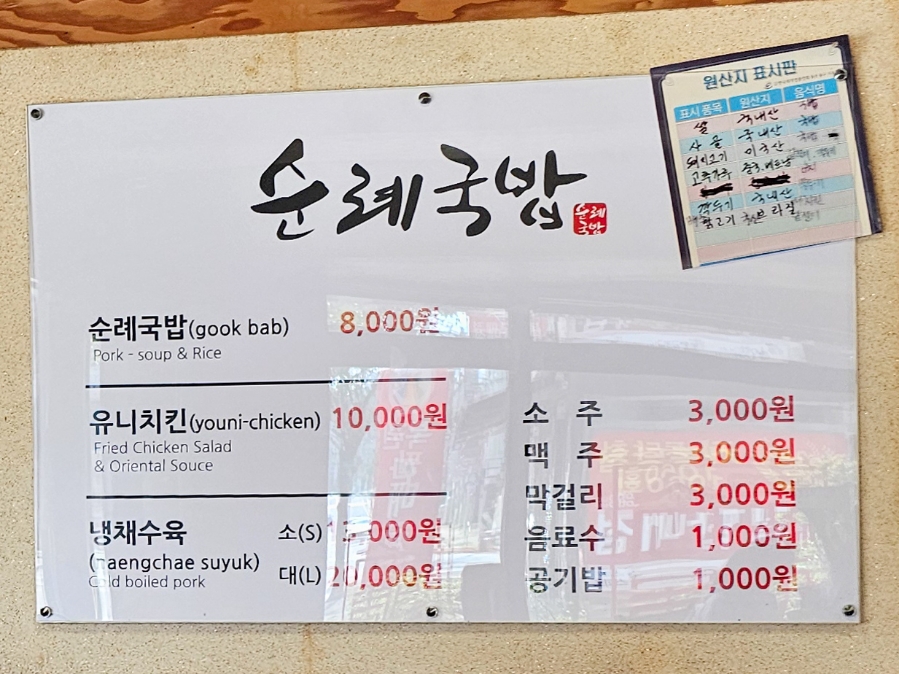 원산지 표시판
표시 품목 원산지 음식명
쌀 국내산 국밥
사골 국내산 국밥
돼지고기 미국산
고추가루 중국,베트남
깍두기 국내산
닭고기 브라질
순례국밥
순례
국밥
순례국밥(gook bab) 8,000원
Pork - soup & Rice
유니치킨(youni-chicken) 10,000원
Fried Chicken Salad
& Oriental Souce
냉채수육 소(S) 13,000원
(naengchae suyuk)
Cold boiled pork 대(L) 20,000원
소 주 3,000원
맥 주 3,000원
막걸리 3,000원
음료수 1,000원
공기밥 1,000원